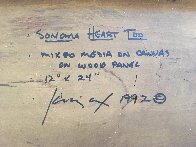 SONOMA HEART TOO
MIXED MEDIA ON CANVAS
ON WOOD PANEL
12" x 24"
1992 ©